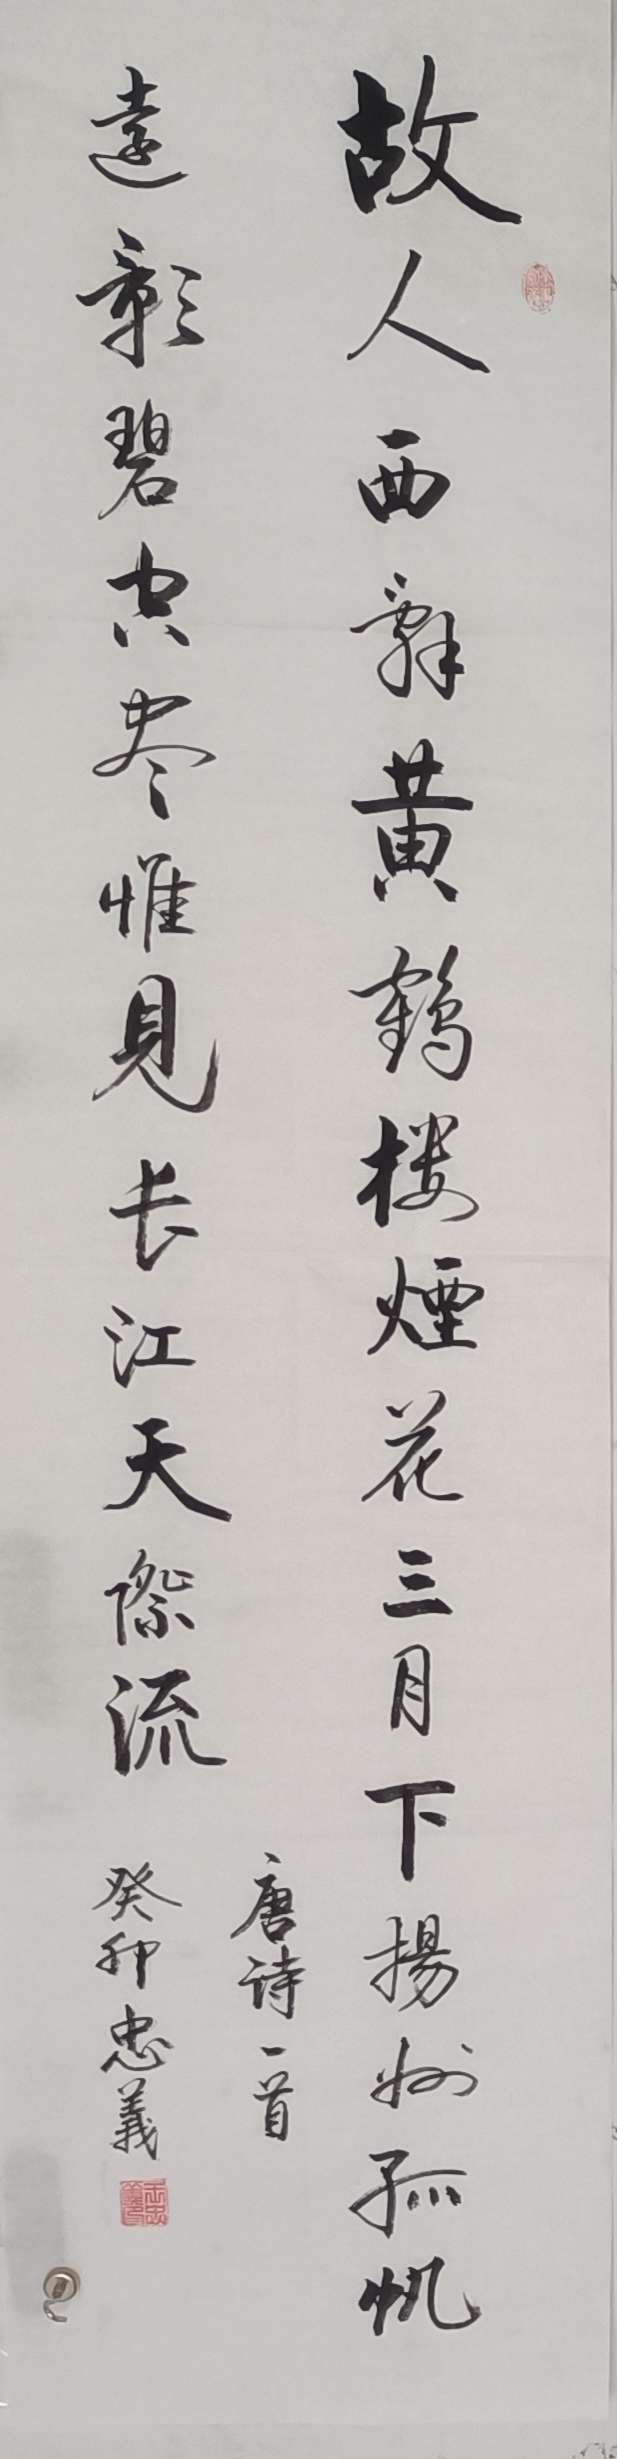 故人西辭黄鶴楼煙花三月下揚州孤帆
遠影碧空尽惟見长江天際流
唐诗一首
癸卯忠義